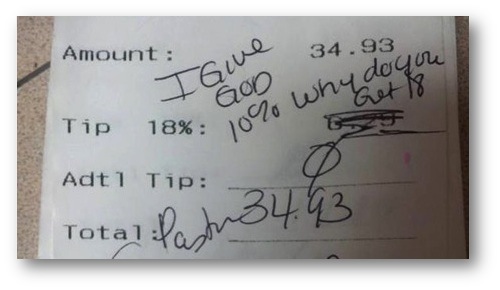 Amount: 34.93
I Give
God
10% why do you
Get 18
Tip 18%: 6.29
Adtl Tip: 0
Total: Pastor 34.93